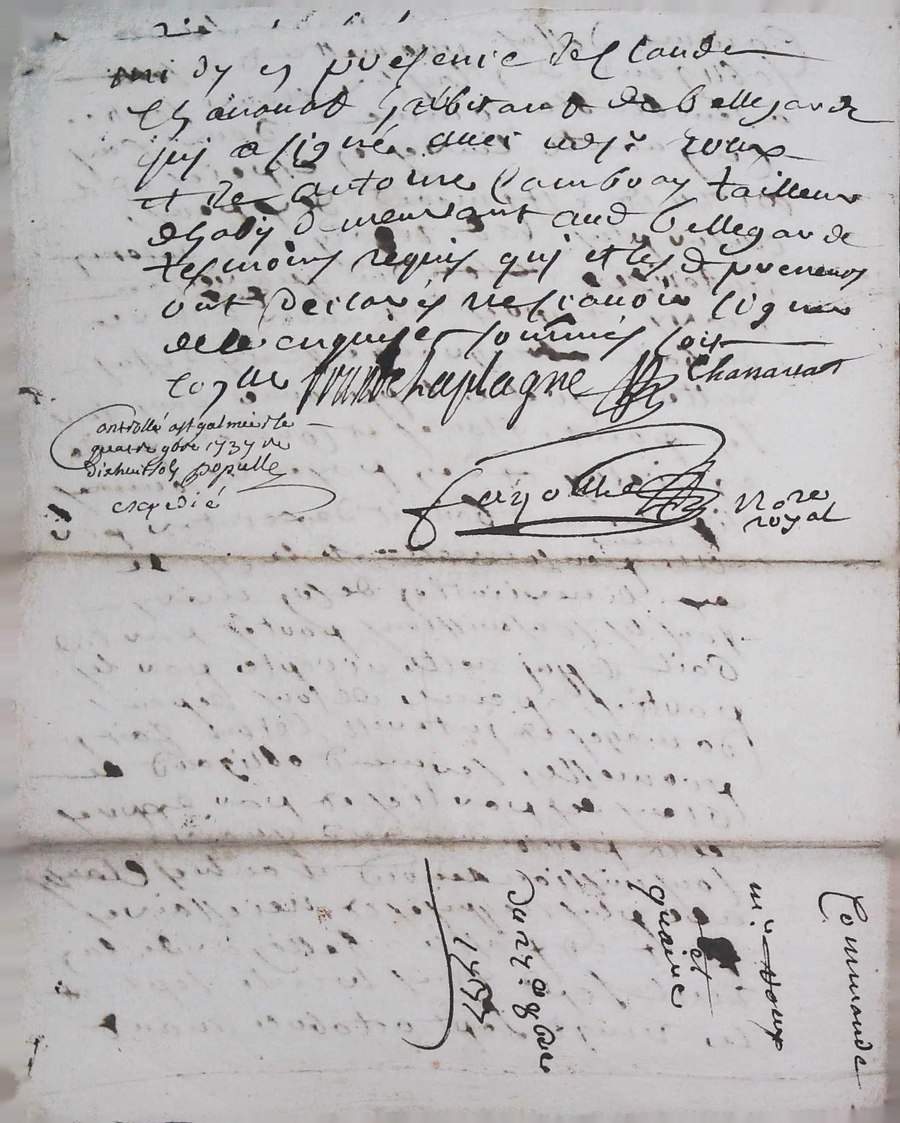 midy en presence de Claude
Chanauat habitant de bellegarde
qui a signé avec ledt sr roux
et de antoine Cambray tailleur
dhabis demeurant aud bellegarde
tesmoins requis qui et les d preneurs
ont declarés ne scavoir signer
de ce enquis et sommés soit
Laplagne Chanauat
Controllé a st galmier le
quatre 9bre 1737 re
dixhuit sols populle
expedié
fayolle nore
royal
Commande
mr roux
et
quaire
Du 27 8bre
1737